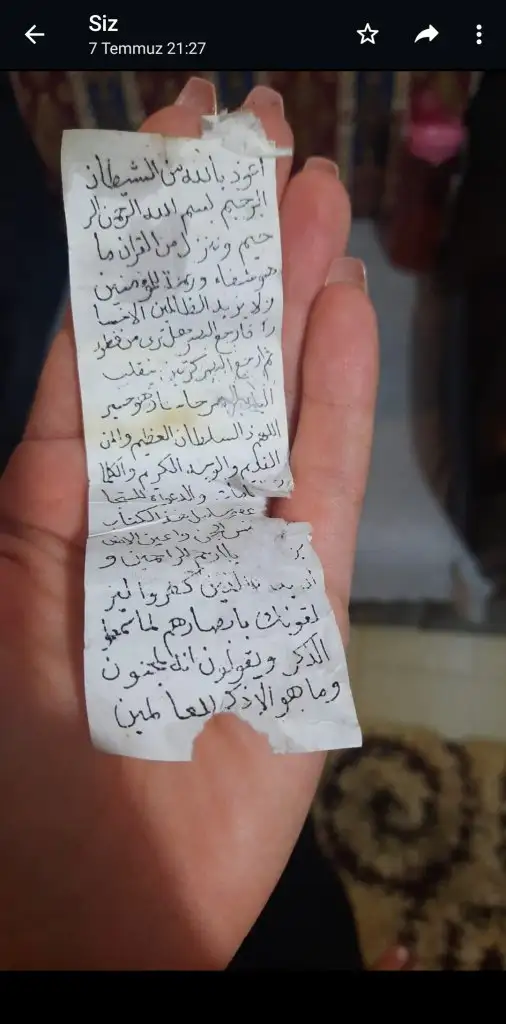 Siz
7 Temmuz 21:27
اعوذ بالله من الشيطان
الرجيم بسم الله الرحمن الر
حيم وننزل من القران ما
هو شفاء ورحمة للمومنين
ولا يزيد الظالمين الا خسا
را فارجع البصر هل ترى من فطور
ثم ارجع البصر كرتين ينقلب
خاسا وهو حسير
اللهم ذ السلطان العظيم والمن
القديم والوجه الكريم والكلما
والدعواة
الجن واعين الانس
يا ارحم الراحمين و
الذين كفروا ليز
لقونك بابصارهم لما سمعوا
الذكر ويقولون انه لمجنون
وما هو الا ذكر للعالمين